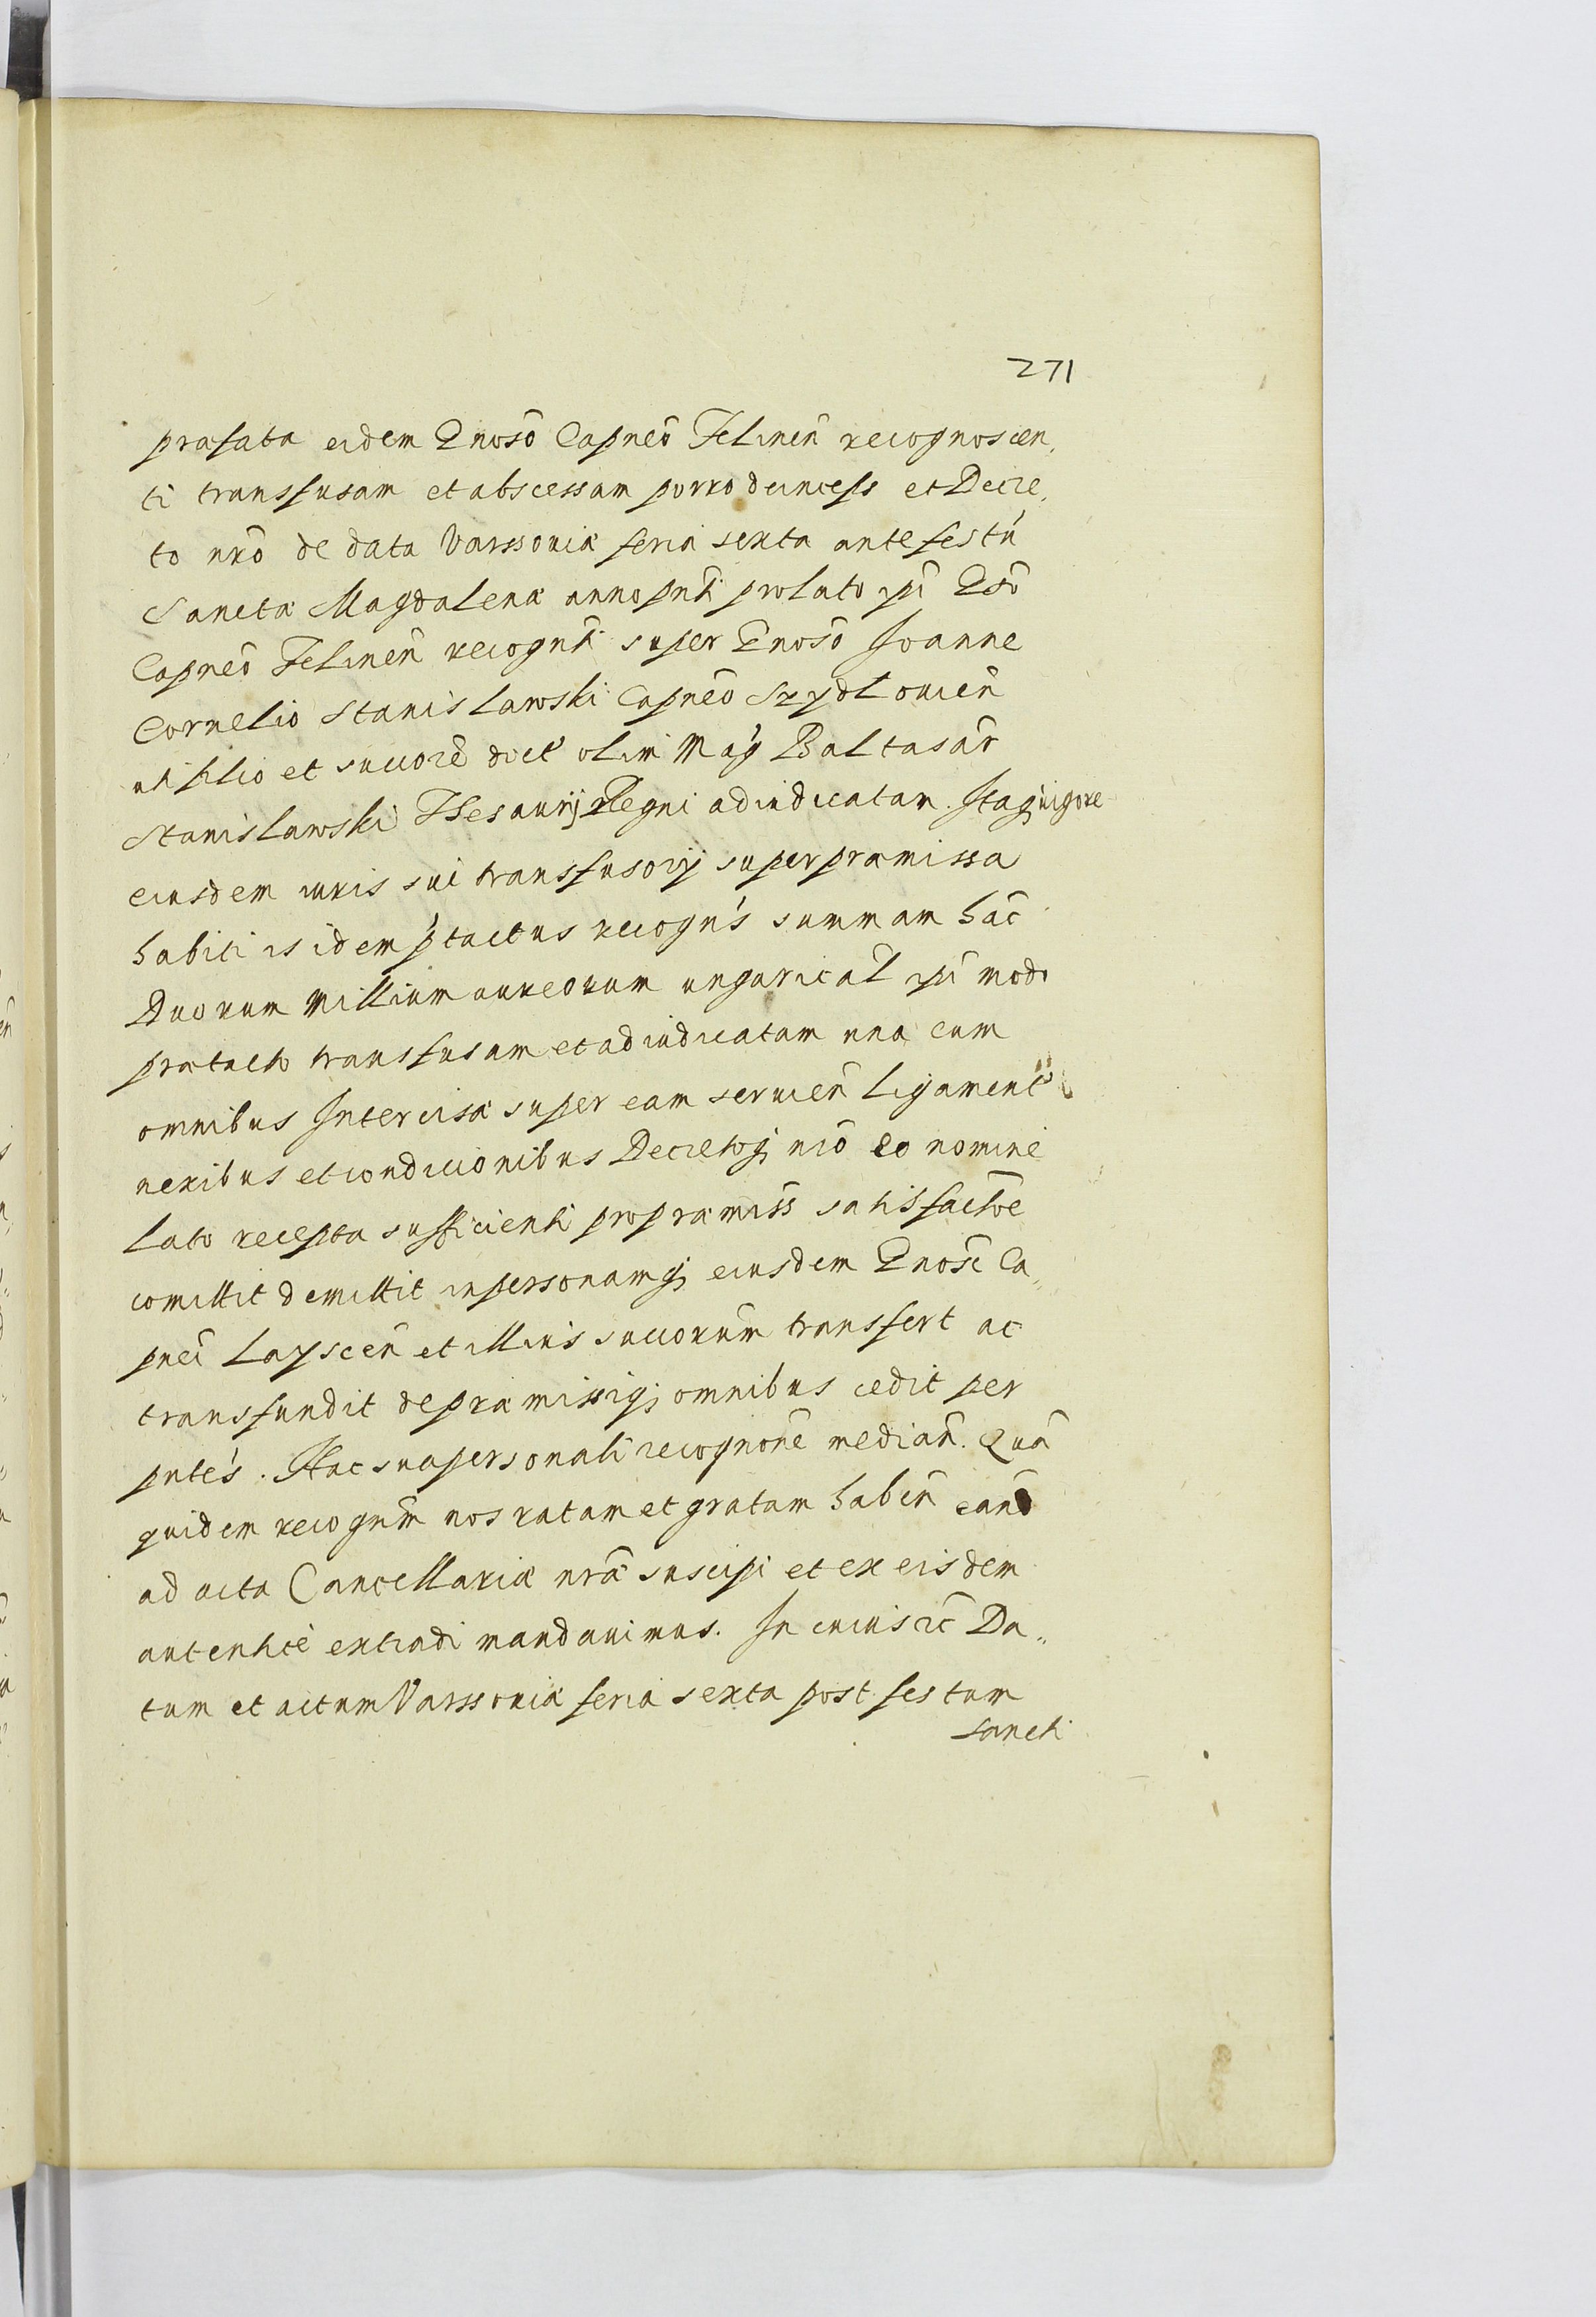 271
præfata eidem Gnoso Capneo Felinen recognoscen,
ti transfusam et abscessam porro deinceps et Decre,
to nro de data Varssouiæ feria sexta ante festū
Sanctæ Magdalenæ anno pnti prolato ipi Gso
Capneo Felinen recognti super Gnoso Joanne
Cornelio Stanislawski Capneo Szydlouien
uti filio et succore dict olim Mag Baltasar
Stanislawski Thesaurij Regni adiudicatam. Itaq; uigore
eiusdem iuris sui transfusorij super præmissa
habiti is idem ptactus recogns summam hac
Duorum Millium aureorum ungarical ipi modo
prætacto transfusam et adiudicatam una cum
omnibus Intercisæ super eam seruien Ligament
nexibus et condicionibus Decretoq; nro eo nomine
Lato recepta sufficienti pro præmiss satisfactoe
comittit demittit in personamq; eiusdem Gnosi Ca„
pnei Layscen et illius succorum transfert ac
transfundit de præmissiq; omnibus cedit per
pntes. Hac sua personali recognone median. Quā
quidem recognem nos ratam et gratam haben eand
ad acta Cancellariæ nræ suscipi et ex eisdem
autentice extradi mandauimus. In cuius rc Da„
tum et actum Varssouiæ feria sexta post festum
Sancti